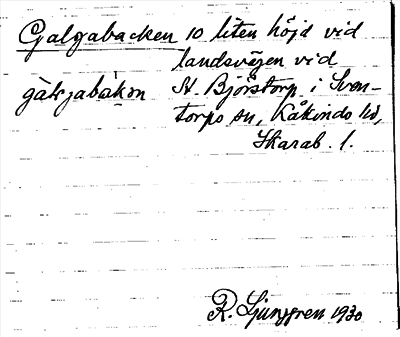 Galgabacken 10 liten höjd vid
landsvägen vid
gàlgabàkən St. Björstorp i Sven-
torps sn, Kåkinds hd,
Skarab. l.
R. Ljunggren 1930